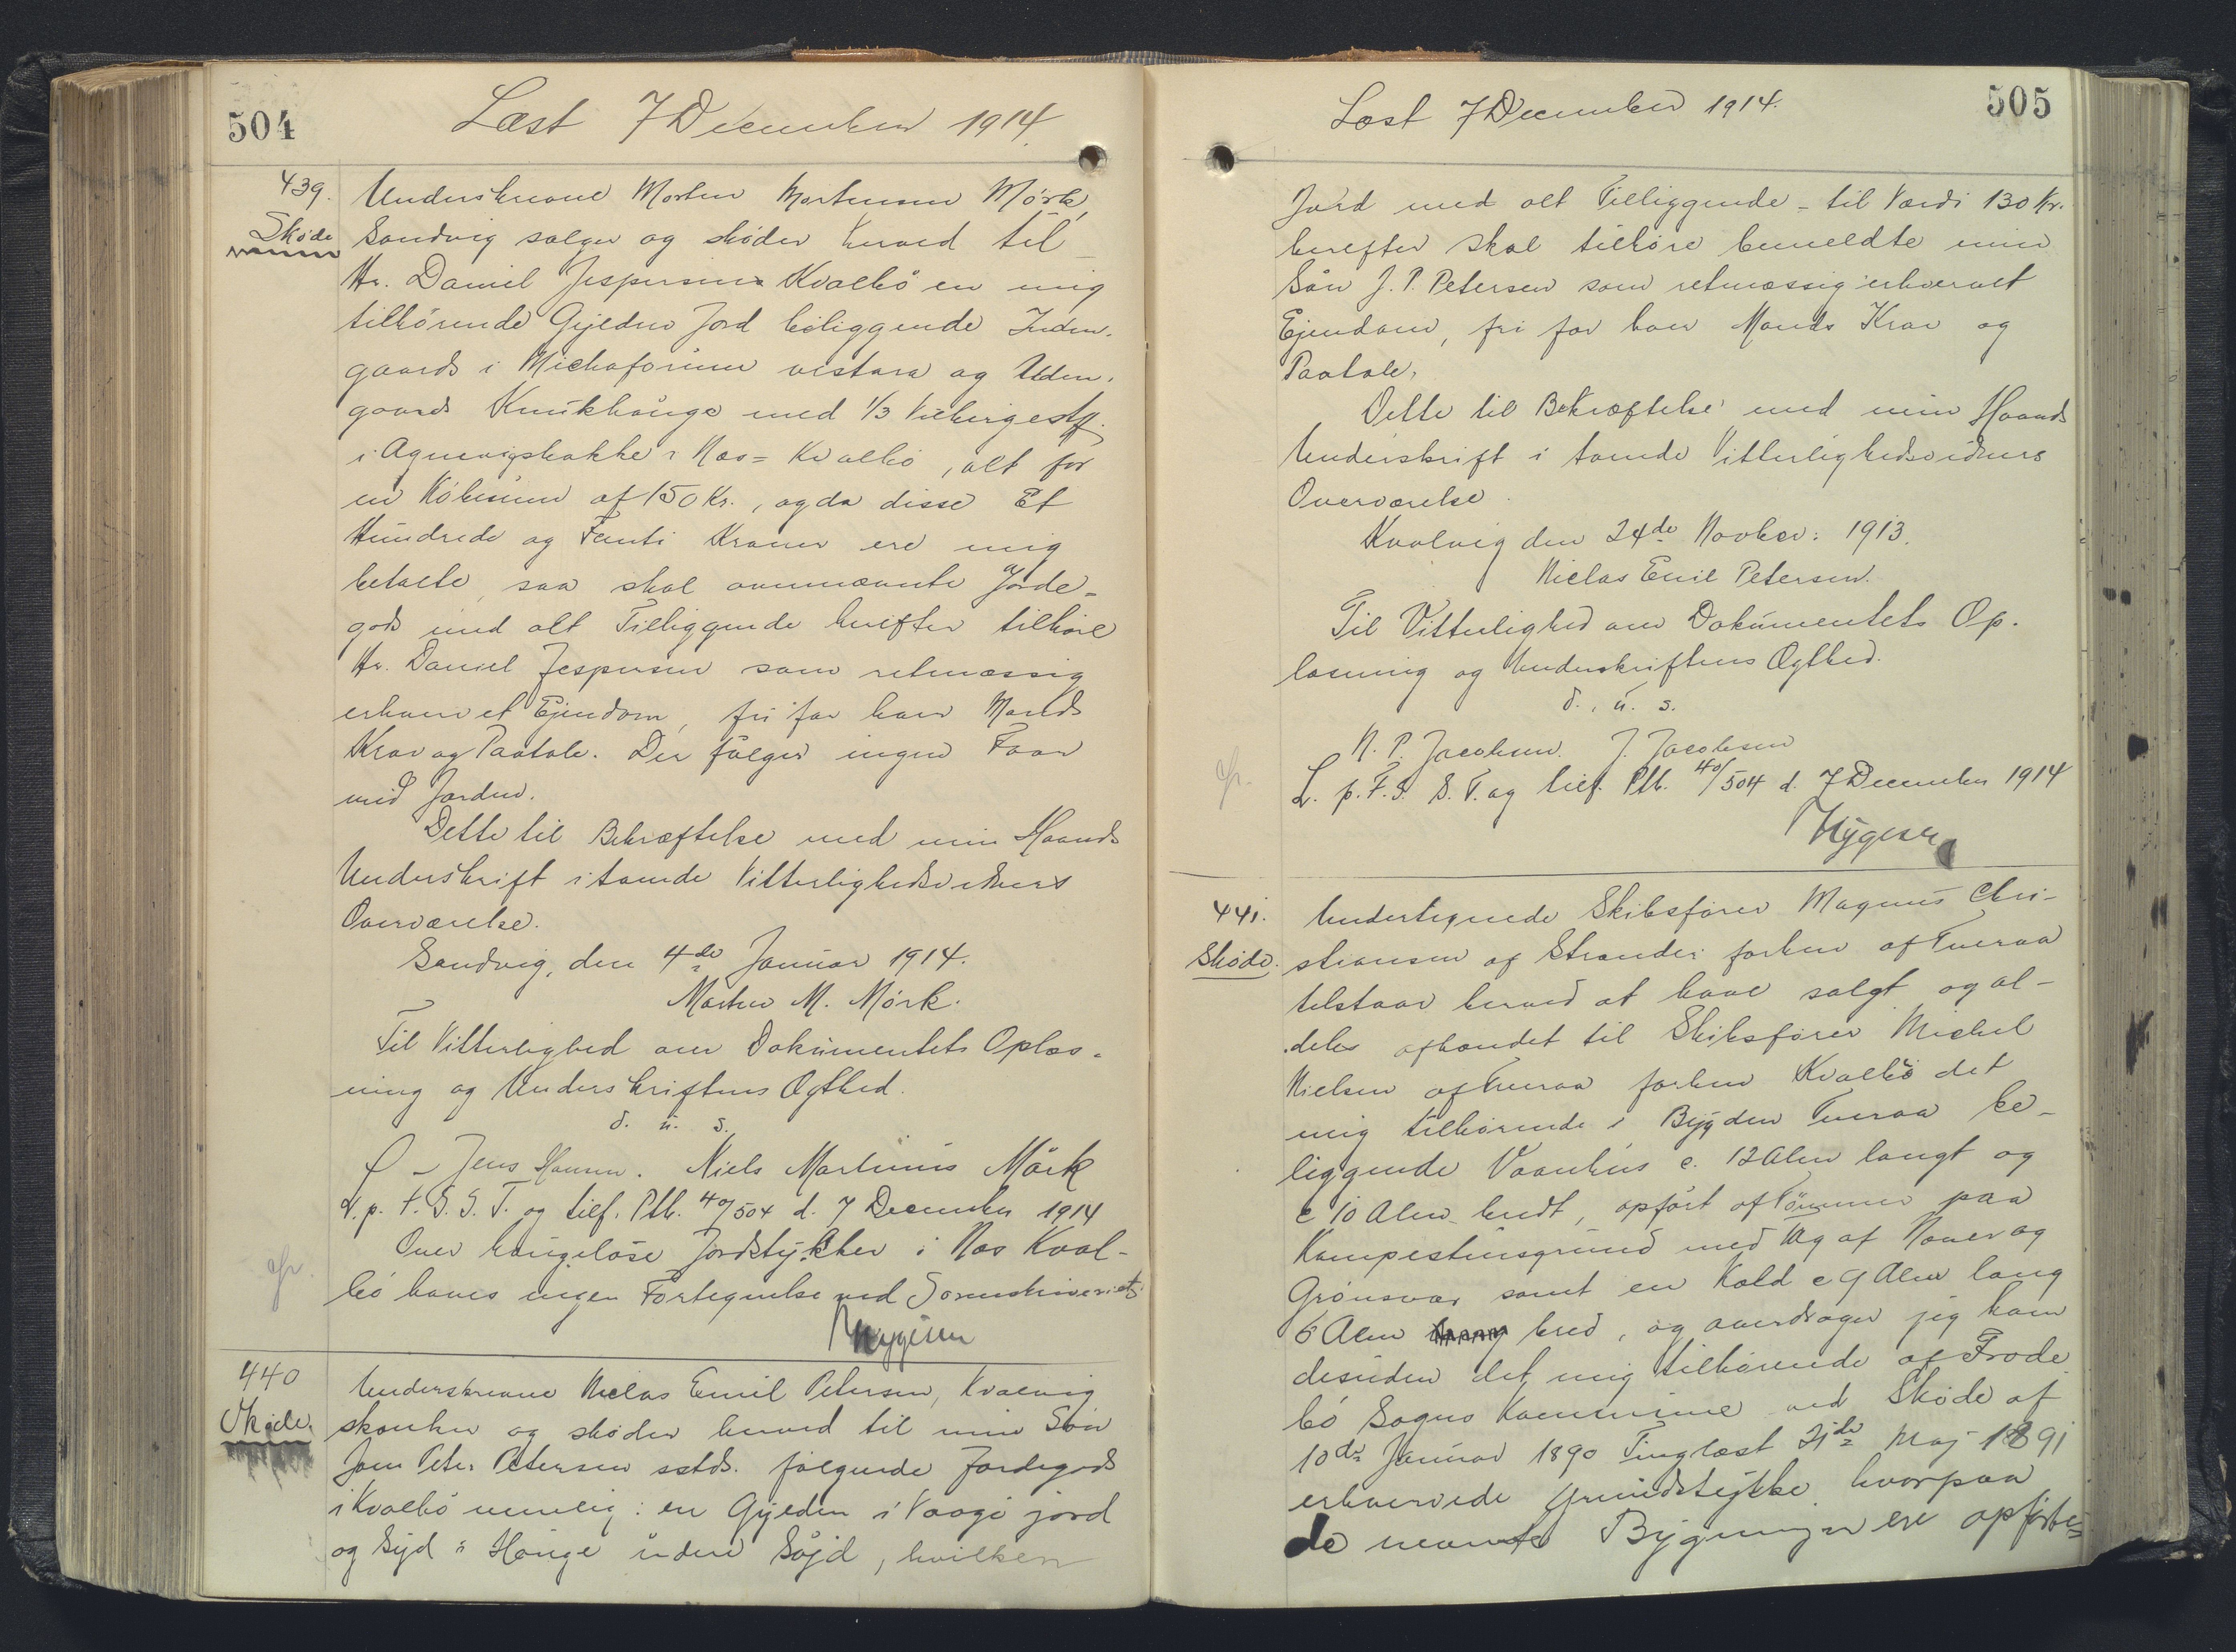 504
Læst 7 December 1914.
439.
Skøde
Underskrevne Morten Mortensen Mörk,
Sandvig sælger og skøder herved til
Hr. Daniel Jespersen Kvalbø en mig
tilhørende Gylden Jord beliggende Inden-
gaards i vestara og Uden-
gaards med 1/3
i i Næs = Kvalbø, alt for
en Købesum af 150 Kr., og da disse Et
Hundrede og Femti Kroner ere mig
betalte, saa skal ovennævnte Jorde-
gods med alt Tilliggende herefter tilhøre
Hr. Daniel Jespersen som retmæssig
erhvervet Ejendom, fri for hver Mands
Krav og Paatale. Der følger ingen Faar
med Jorden.
Dette til Bekræftelse med min Haands
Underskrift i tvende Vitterlighedsvidners
Overværelse.
Sandvig, den 4de Januar 1914.
Morten M. Mörk.
Til Vitterlighed om Dokumentets Oplæs-
ning og Underskriftens Ægthed.
d. u. s.
Jens Hansen. Niels Martinus Mörk
L. p. F. S. S. T. og tilf. Ptb. 40/504 d. 7 December 1914
Over haugeløse Jordstykker i Næs Kval-
bø haves ingen Fortegnelse ved Sorenskriveriet.
440
Skøde.
Underskrevne Niclas Emil Petersen, Kvalvig
skænker og skøder herved til min Søn
Joen Peter Petersen sstds. følgende Jordegods
i Kvalbø nemlig: en Gylden i jord
og Syd i Hauge under Söjd, hvilken
505
Læst 7 December 1914.
Jord med alt Tilliggende - til Værdi 130 Kr.
herefter skal tilhøre bemeldte min
Søn J. P. Petersen som retmæssig erhvervet
Ejendom, fri for hver Mands Krav og
Paatale.
Dette til Bekræftelse med min Haands
Underskrift i tvende Vitterlighedsvidners
Overværelse.
Kvalvig den 24de Novber: 1913.
Niclas Emil Petersen.
Til Vitterlighed om Dokumentets Op-
læsning og Underskriftens Ægthed.
d. u. s.
N. P. Jacobsen. J. Jacobsen
L. p. F. S. S. T. og tilf. Ptb. 40/504 d. 7 December 1914
441.
Skøde.
Undertegnede Skibsfører Magnus Chri-
stiansen af Strender forhen af Tveraa
tilstaar herved at have solgt og al-
deles afhændet til Skibsfører Michel
Nielsen af Tveraa forhen Kvalbø det
mig tilhørende i Bygden Tveraa be-
liggende Vaanhus c. 12 Alen langt og
c 10 Alen bredt, opført af Tømmer paa
Kampestensgrund med Tag af Næver og
Grønsvær samt en Kald c 9 Alen lang
6 Alen bred, og overdrager jeg ham
desuden det mig tilhørende af Frode
bø Sogns Kommune ved Skøde af
10de Januar 1890 Tinglæst 21de Maj 1891
erhvervede Grundstykke hvorpaa
de nævnte Bygninger ere opførte